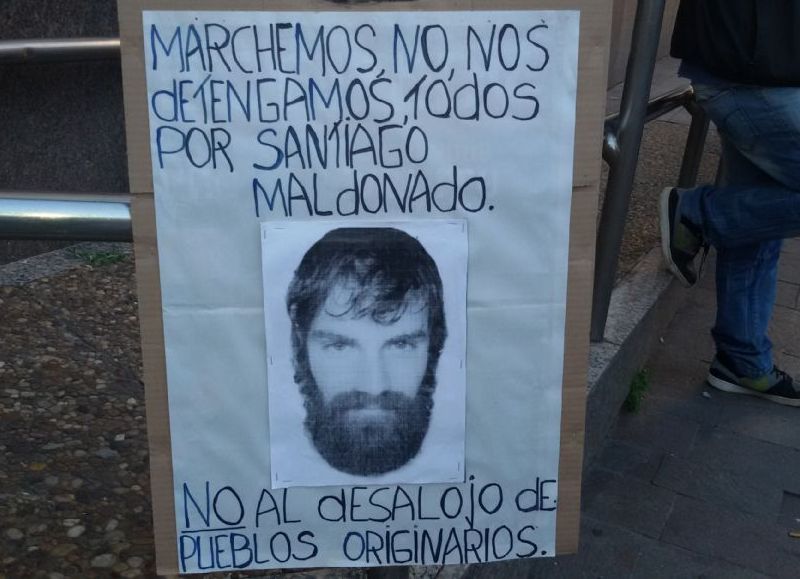 MARCHEMOS, NO, NOS
dETENGAMOS, TOdOS
POR SANTIAGO
MALdONAdO.
NO AL dESALOJO dE
PUEBLOS ORIGINARIOS.